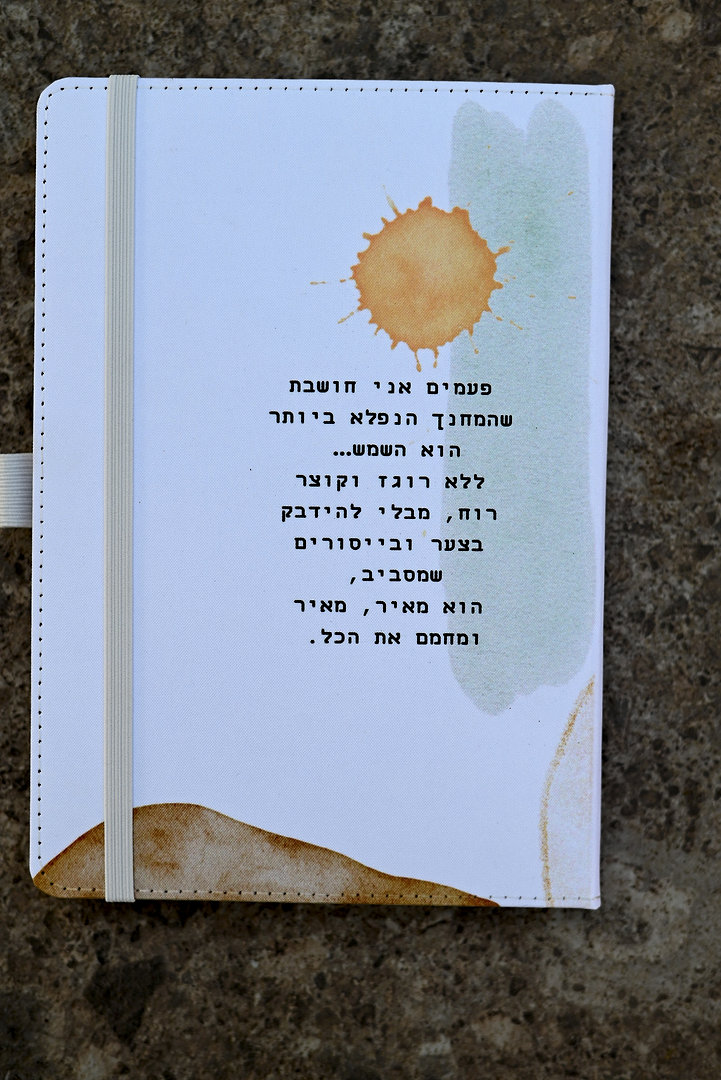 פעמים אני חושבת
שהמחנך הנפלא ביותר
הוא השמש...
ללא רוגז וקוצר
רוח, מבלי להידבק
בצער ובייסורים
שמסביב,
הוא מאיר, מאיר
ומחמם את הכל.